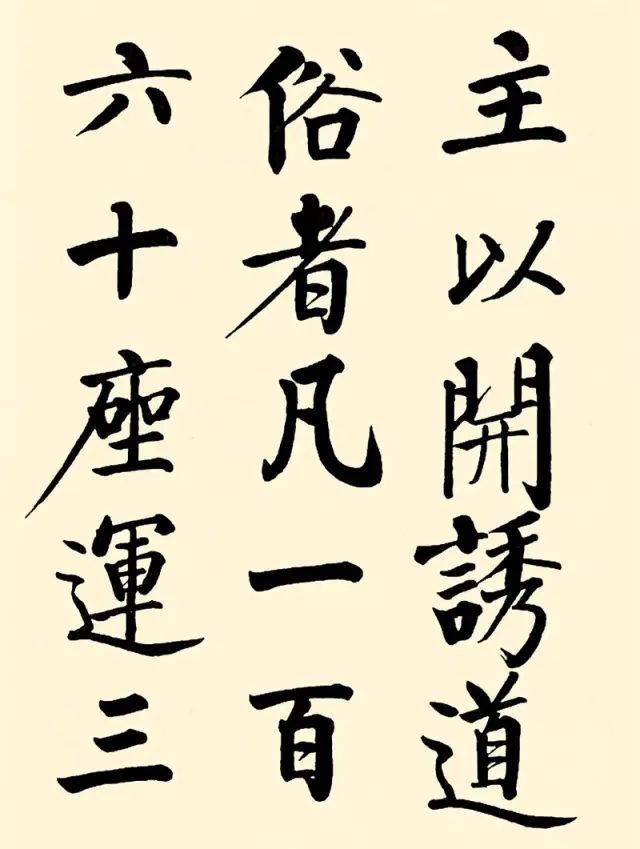 主以開誘道
俗者凡一百
六十座運三